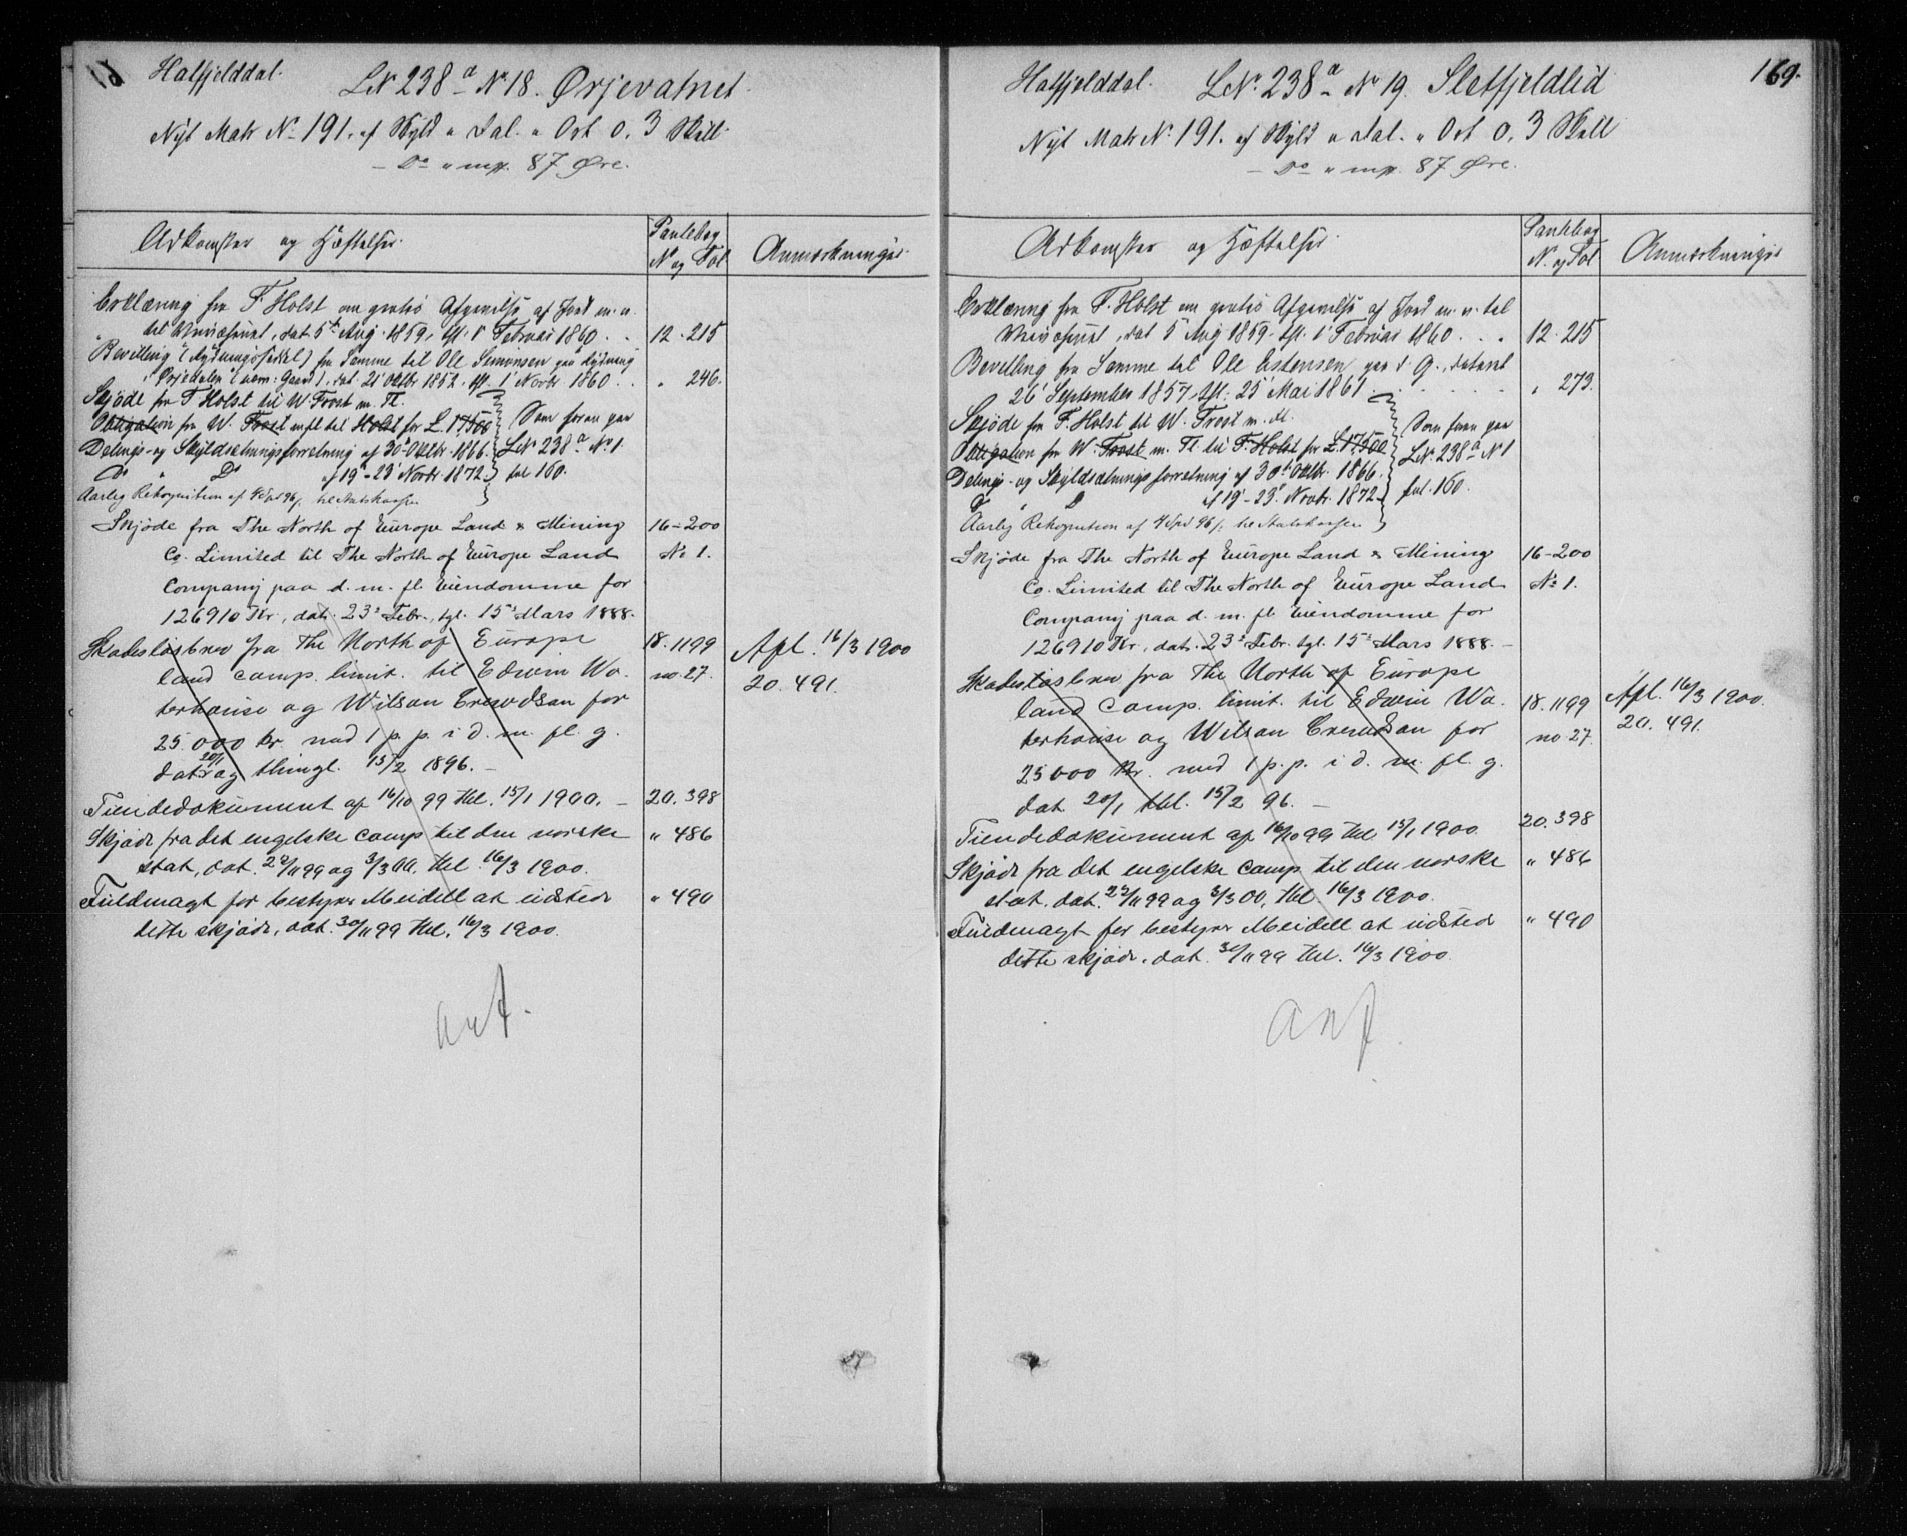 Hatfjelddal.
LN 238 a No 18. Ørjevatnet.
Nyt Matr No 191. af Skyld " Dal. " Ort 0. 3 Skill.
— Do " mrk. 87 Øre.
Adkomster og Hæftelser.
Pantebog
N og Fol
Anmærkninger.
Erklæring fra F. Holst om gratis Afgivelse af Jord m. v.
til dat 5te Aug. 1859, tgl. 1 Februar 1860 . . 12. 215
Bevilling (Rydningsseddel) fra Samme til Ole Simonsen paa Rydning
" Ørjedalen " dat. 21 Oktbr 1852. tgl. 1 Novbr 1860 . . " 246.
Skjøde fra F Holst til W. Frost m. fl.
Obligation fra W. Frost m fl til Holst for £. 17,500
Delings- og Skyldsætningsforretning af 30 Oktbr 1866.
Do " Do af 19 - 23 Novbr. 1872.
Som foran paa
LN 238 a No 1
fol 160.
Aarlig Rekognition af 4 Spd 96 s. til Statskassen
Skjøde fra The North of Europe Land & Mining 16-200
Co. Limited til The North of Europe Land No 1.
Company paa d. m. fl. Eiendomme for
126910 Kr., dat. 23 Febr., tgl. 15 Mars 1888.
Skadesløsbrev fra The North of Europe 18. 1199 Afl. 16/3 1900
land comp. limit. til Edwin Wa- no. 27. 20. 491.
terhouse og Wilson Crewdson for
25.000 kr. med 1 p. p. i d. m. fl. g.
dat. 20/1 og thingl. 15/2 1896. —
Tiendedokument af 16/10 99 thl. 15/1 1900. — 20. 398
Skjøde fra det engelske comp. til den norske " 486
stat, dat. 29/11 99 og 3/3 00, thl. 16/3 1900.
Fuldmagt for bestyrer Meidell at udstede " 490
dette skjøde, dat. 30/11 99 thl. 16/3 1900.
anf.
169.
Hatfjelddal.
LNo 238 a No 19. Sletfjeldlid
Nyt Matr No 191. af Skyld " Dal. " Ort 0. 3 Skill
— Do " mrk. 87 Øre.
Adkomster og Hæftelser
Pantebog
N. og Fol
Anmærkninger
Erklæring fra F. Holst om gratis Afgivelse af Jord m. v. til
dat 5 Aug 1859. tgl. 1 Februar 1860 . . . 12. 215
Bevilling fra Samme til Ole Estensen paa d. G., dateret
26 September 1857, tgl. 25 Mai 1861 . . . " 273.
Skjøde fra F. Holst til W. Frost m. fl.
Obligation fra W. Frost m. Fl. til F. Holst for £. 17,500
Delings- og Skyldsætningsforretning af 30te Oktbr. 1866.
Do " Do af 19 - 23 Novbr. 1872
Som foran paa
LNo 238 a No 1
fol. 160.
Aarlig Rekognition af 4 Spd 96 s. til Statskassen
Skjøde fra The North of Europe Land & Mining 16-200
Co. Limited til The North of Europe Land No 1.
Company paa d. m. fl. Eiendomme for
126910 Kr., dat. 23 Febr. tgl. 15 Mars 1888. —
Skadesløsbrev fra The North of Europe
land comp. limit. til Edwin Wa- 18. 1199 Afl. 16/3 1900.
terhouse og Wilson Crewdson for no 27. 20. 491.
25000 kr. med 1 p. p. i d. m. fl. g.
dat 20/1 thl. 15/2 96. —
Tiendedokument af 16/10 99 thl 15/1 1900. 20. 398
Skjøde fra det engelske comp. til den norske " 486
stat, dat. 29/11 99 og 3/3 00, thl. 16/3 1900.
Fuldmagt for bestyrer Meidell at udstede " 490
dette skjøde, dat. 30/11 99 thl. 16/3 1900.
anf.